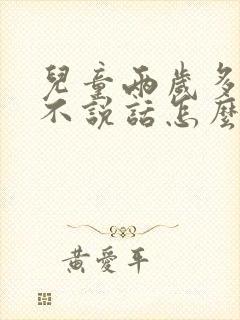 兒童兩歲多
不說話怎麼
黃愛平